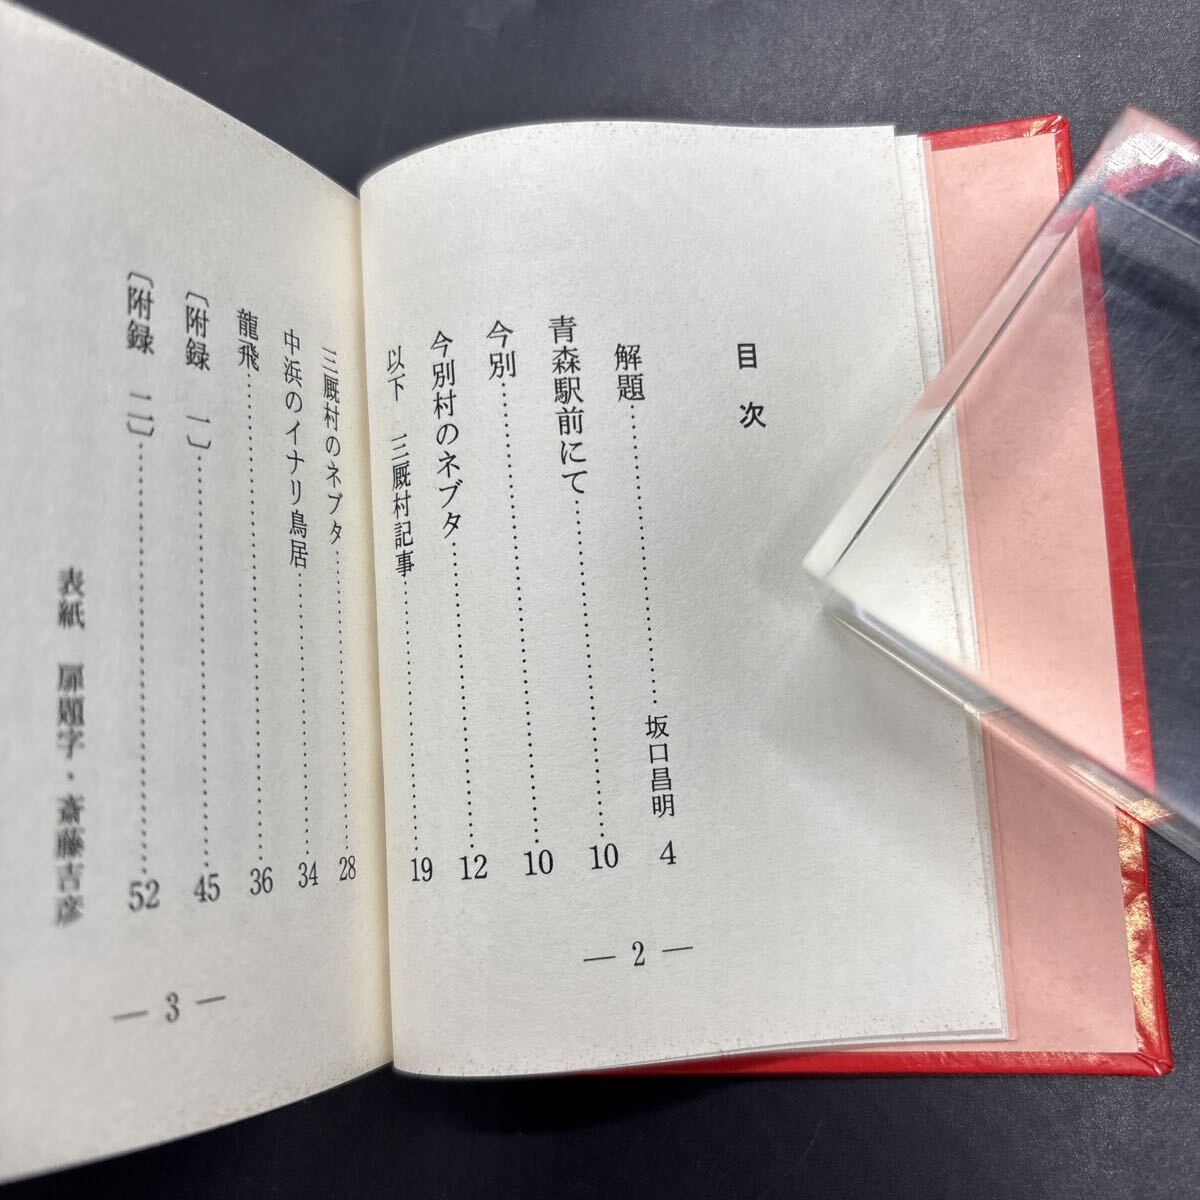 目次
解題……………………坂口昌明 4
青森駅前にて……………………10
今別……………………10
今別村のネブタ……………………12
以下　三厩村記事……………………19
— 2 —
三厩村のネブタ……………………28
中浜のイナリ鳥居……………………34
龍飛……………………36
〔附録　一〕……………………45
〔附録　二〕……………………52
表紙　扉題字・斎藤吉彦
— 3 —